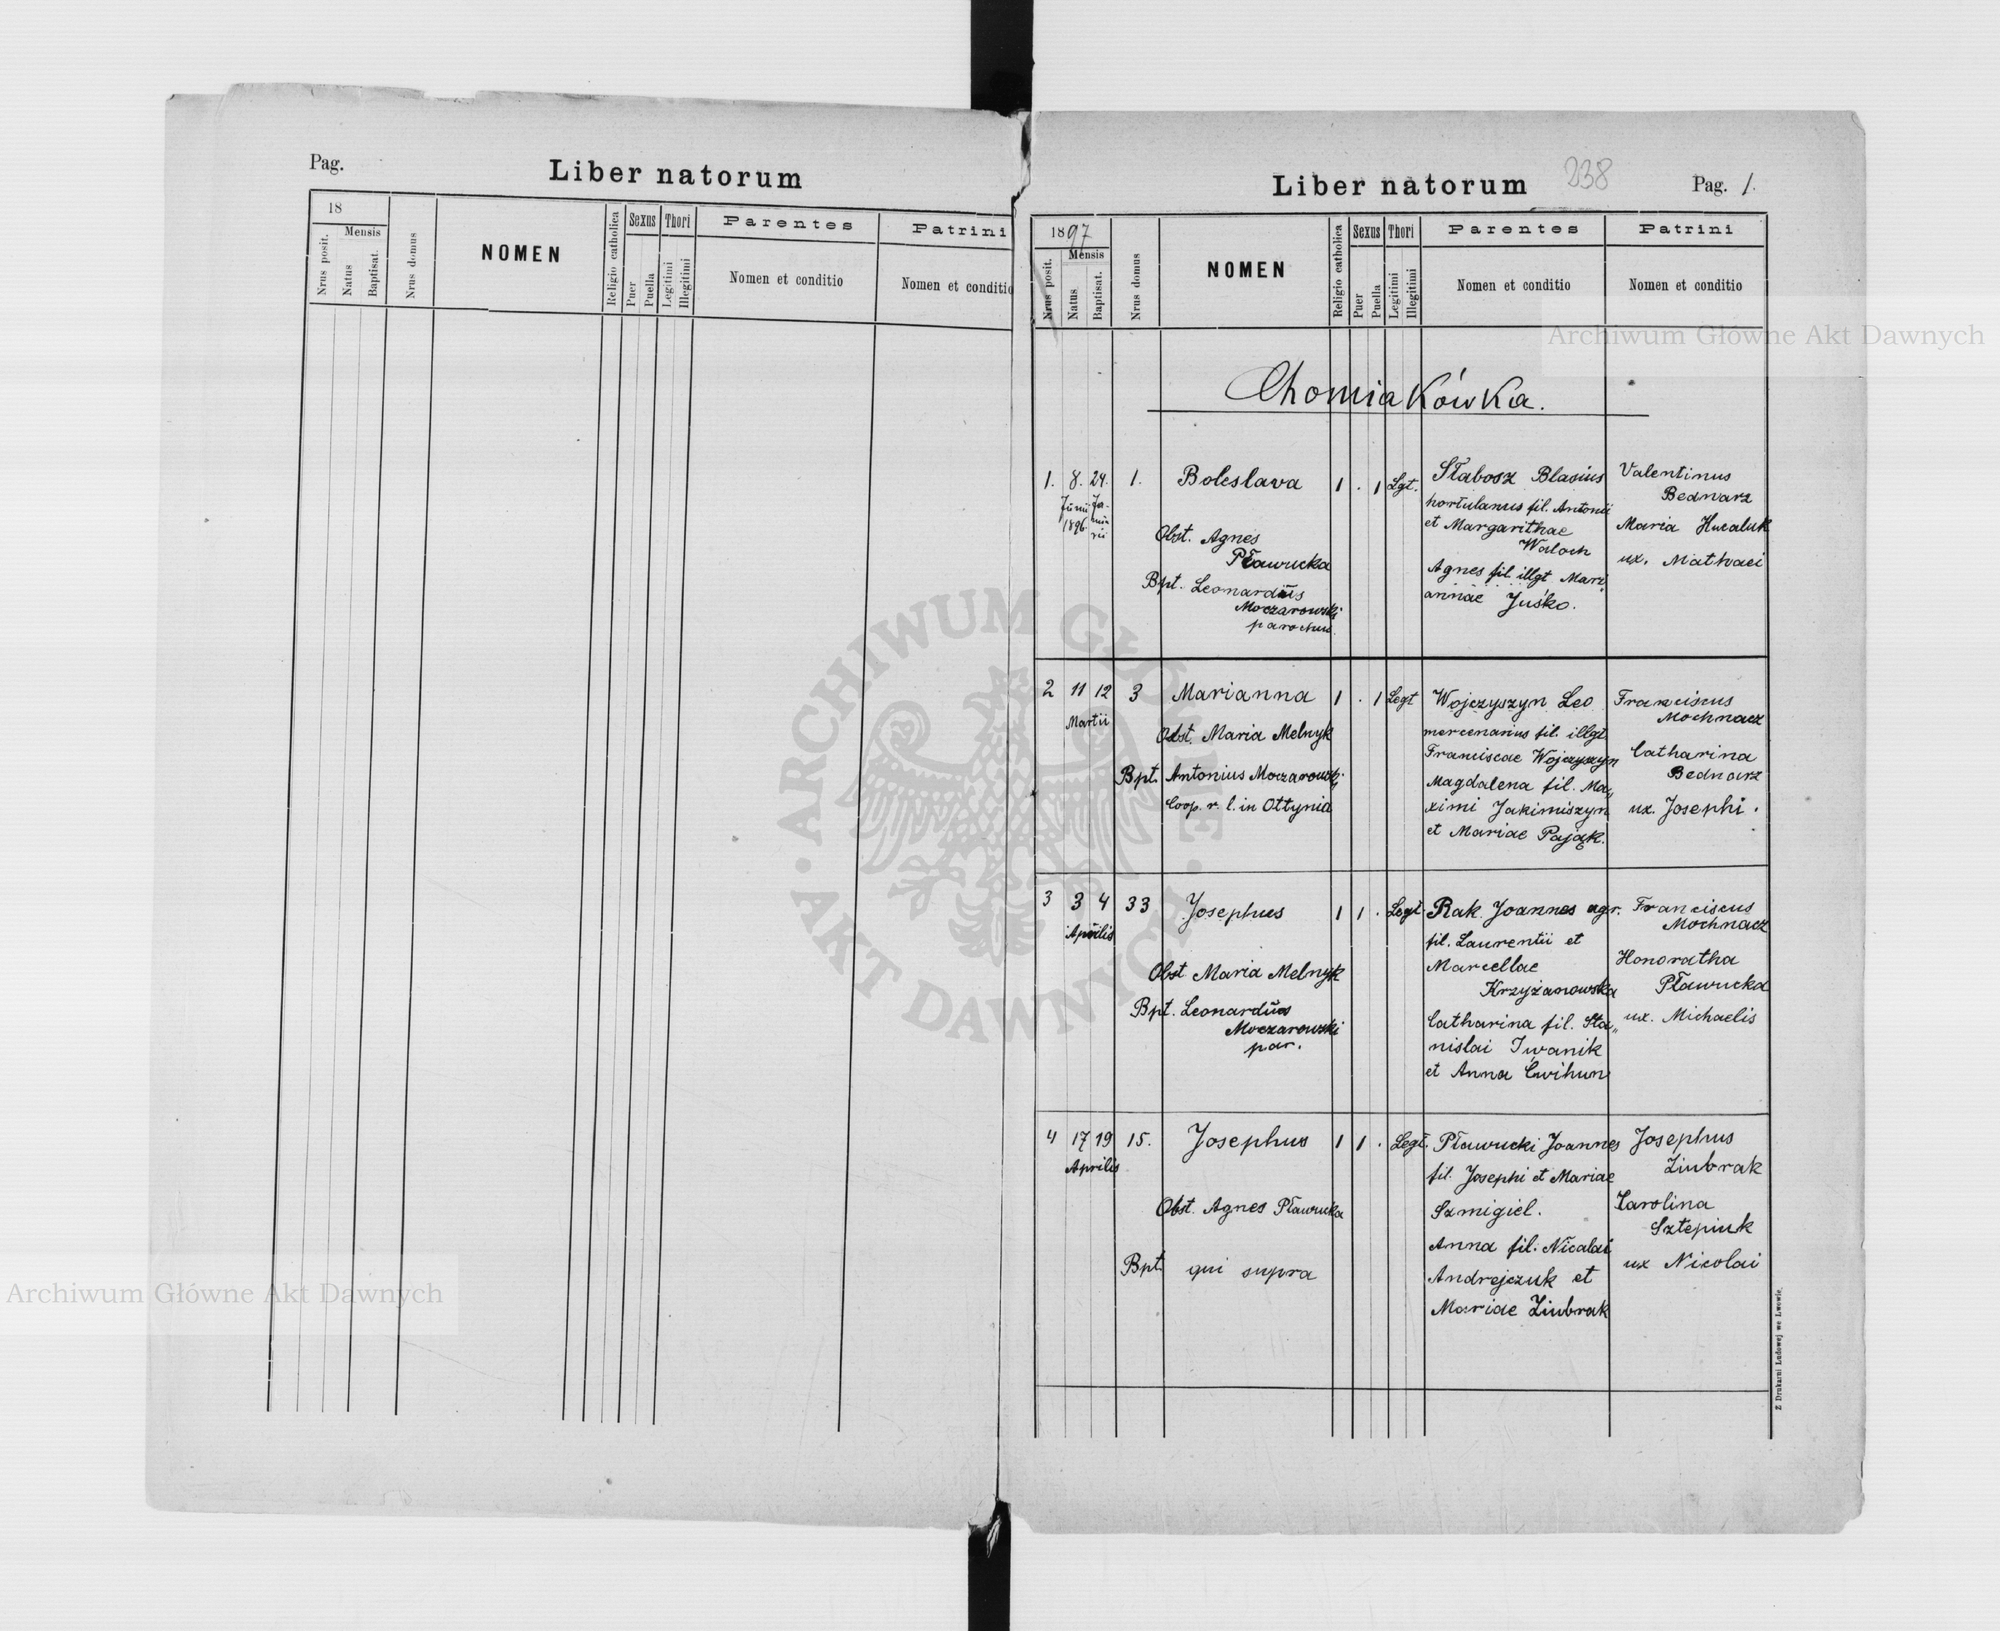 Pag.
Liber natorum
18
Mensis
Nrus posit.
Natus
Baptisat.
Nrus domus
NOMEN
Religio catholica
Sexus
Puer
Puella
Thori
Legitimi
Illegitimi
Parentes
Nomen et conditio
Patrini
Nomen et conditio
Liber natorum
238
Pag. 1.
1897
Mensis
Nrus posit.
Natus
Baptisat.
Nrus domus
NOMEN
Religio catholica
Sexus
Puer
Puella
Thori
Legitimi
Illegitimi
Parentes
Nomen et conditio
Patrini
Nomen et conditio
Archiwum Główne Akt Dawnych
Chomiakówka.
1. 8. 24. 1. Boleslava 1 . 1 Lgt.
Junii 1896.
Ja-
nua-
rii
Obst. Agnes
Pławucka
Bpt. Leonardus
Moczarowski
parochus.
Słabosz Blasius
hortulanus fil. Antonii
et Margarithae
Waloch
Agnes fil. illgt Mari
annae Juśko.
Valentinus
Bednarz
Maria Hucaluk
ux. Mathaei
2 11 12 3 Marianna 1 . 1 Legt
Martii
Obst. Maria Melnyk
Bpt. Antonius Moczarowski
Coop. r. l. in Ottynia
Wojczyszyn Leo
mercenarius fil. illgt
Franciscae Wojczyszyn
Magdalena fil. Ma„
ximi Jakimiszyn
et Mariae Pająk.
Franciscus
Mochnacz
Catharina
Bednarz
ux. Josephi.
3 3 4 33 Josephus 1 1 . Legt.
Aprilis
Obst Maria Melnyk
Bpt. Leonardus
Moczarowski
par.
Rak Joannes agr.
fil. Laurentii et
Marcellae
Krzyżanowska
Catharina fil. Sta„
nislai Iwanik
et Anna Cwihun
Franciscus
Mochnacz
Honoratha
Pławucka
ux. Michaelis
4 17 19 15. Josephus 1 1 . Legt.
Aprilis
Obst. Agnes Pławucka
Bpt. qui supra
Pławucki Joannes
fil. Josephi et Mariae
Szmigiel.
Anna fil. Nicalai
Andrejczuk et
Mariae Ziubrak
Josephus
Ziubrak
Karolina
Sztepiuk
ux Nicolai
Archiwum Główne Akt Dawnych
Z Drukarni Ludowej we Lwowie.
ARCHIWUM GŁÓWNE
AKT DAWNYCH